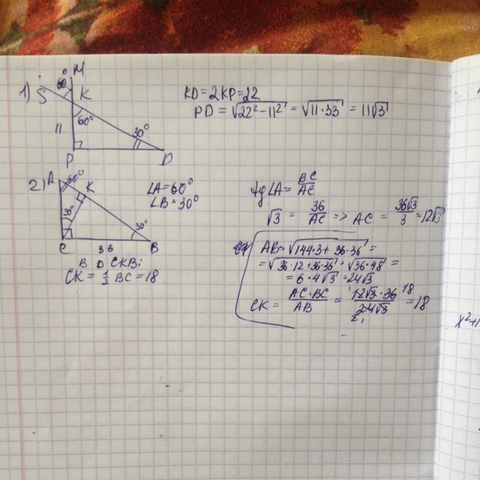 1)
60°
M
S
K
60°
11
30°
P
D
KD = 2KP = 22
PD = √22² - 11² = √11·33 = 11√3
2)
A
60°
K
30°
30°
C
36
B
∠A = 60°
∠B = 30°
В Δ CKB:
CK = 1/2 BC = 18
tg∠A = BC/AC
√3 = 36/AC => AC = 36√3/3 = 12√3
AB = √144·3 + 36·36 =
= √36·12+36·36 = √36·48 =
= 6·4√3 = 24√3
CK = AC·BC/AB = 12√3·36/24√3 = 18
18
2
x²+1